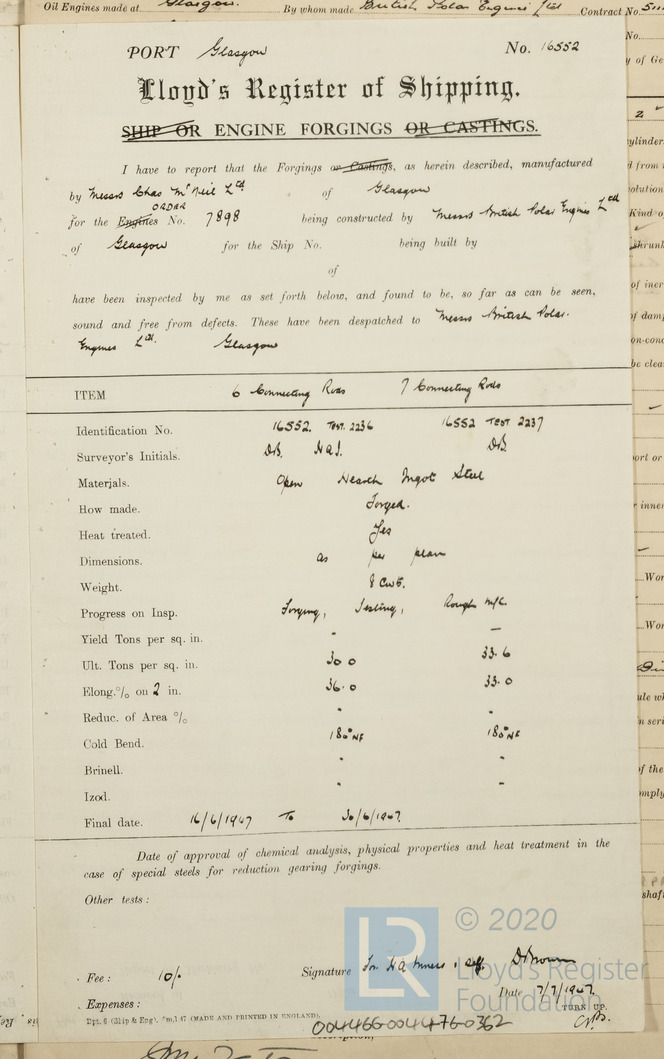 Oil Engines made at Glasgow. By whom made British Polar Engines Ltd Contract No.
PORT Glasgow No. 16552
Lloyd's Register of Shipping.
SHIP OR ENGINE FORGINGS OR CASTINGS.
I have to report that the Forgings or Castings, as herein described, manufactured
by Messrs Chas Mc Neil Ltd of Glasgow
ORDER
for the Engines No. 7898 being constructed by Messrs British Polar Engines Ltd
of Glasgow for the Ship No. being built by
of
have been inspected by me as set forth below, and found to be, so far as can be seen,
sound and free from defects. These have been despatched to Messrs British Polar
Engines Ltd. Glasgow
ITEM 6 Connecting Rods 7 Connecting Rods
Identification No. 16552. TEST. 2236 16552 TEST 2237
Surveyor's Initials. DB. DB.
Materials. Open Hearth Ingot Steel
How made. Forged.
Heat treated. Yes
Dimensions. as per plan
Weight. 8 Cwt.
Progress on Insp. Forging, Testing, Rough M/C
Yield Tons per sq. in. - -
Ult. Tons per sq. in. 30.0 33.6
Elong. % on 2 in. 36.0 33.0
Reduc. of Area % - -
Cold Bend. 180° NF 180° NF
Brinell. - -
Izod. - -
Final date. 16/6/1947 To 30/6/1947.
Date of approval of chemical analysis, physical properties and heat treatment in the
case of special steels for reduction gearing forgings.
Other tests :
© 2020
Lloyd's Register
Foundation
LR
Fee : 10/- Signature For H.A. & self.
Date 7/7/1947.
Expenses : TURN UP.
Dpt. 6 (Ship & Eng). (MADE AND PRINTED IN ENGLAND).
004466-004476-0362